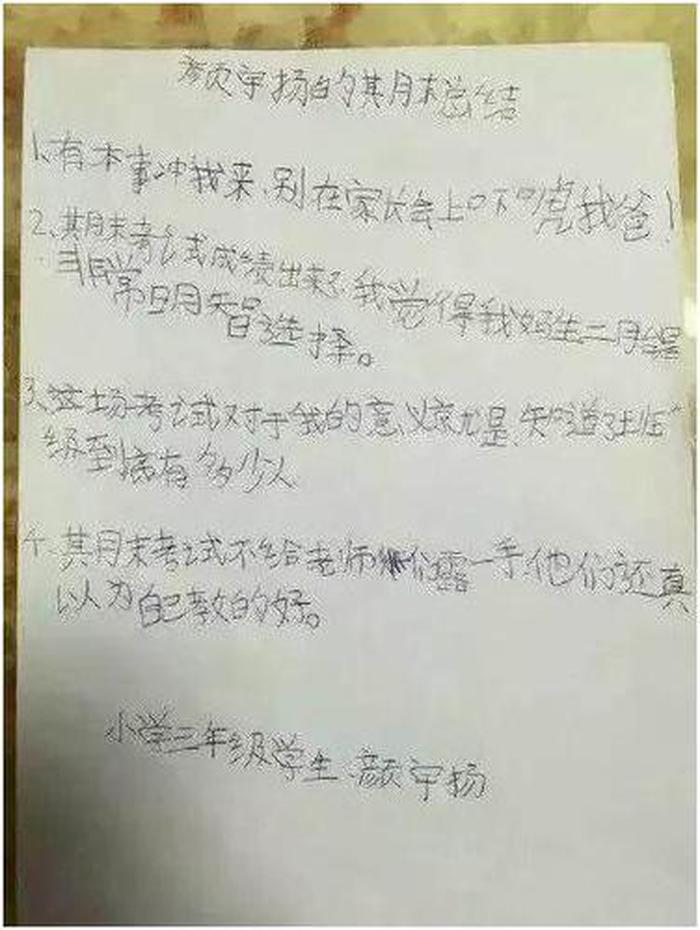 颜宇扬的期月末总结
1、有本事冲我来、别在家长会上吓唬我爸！
2、期末考试成绩出来了、我觉得我妈生二胎是
非常明智选择。
3、这场考试对于我的意义就是、知道了班
级到底有多少人
4、期末考试不给老师们露一手、他们还真
以为自己教的好。
小学三年级学生、颜宇扬